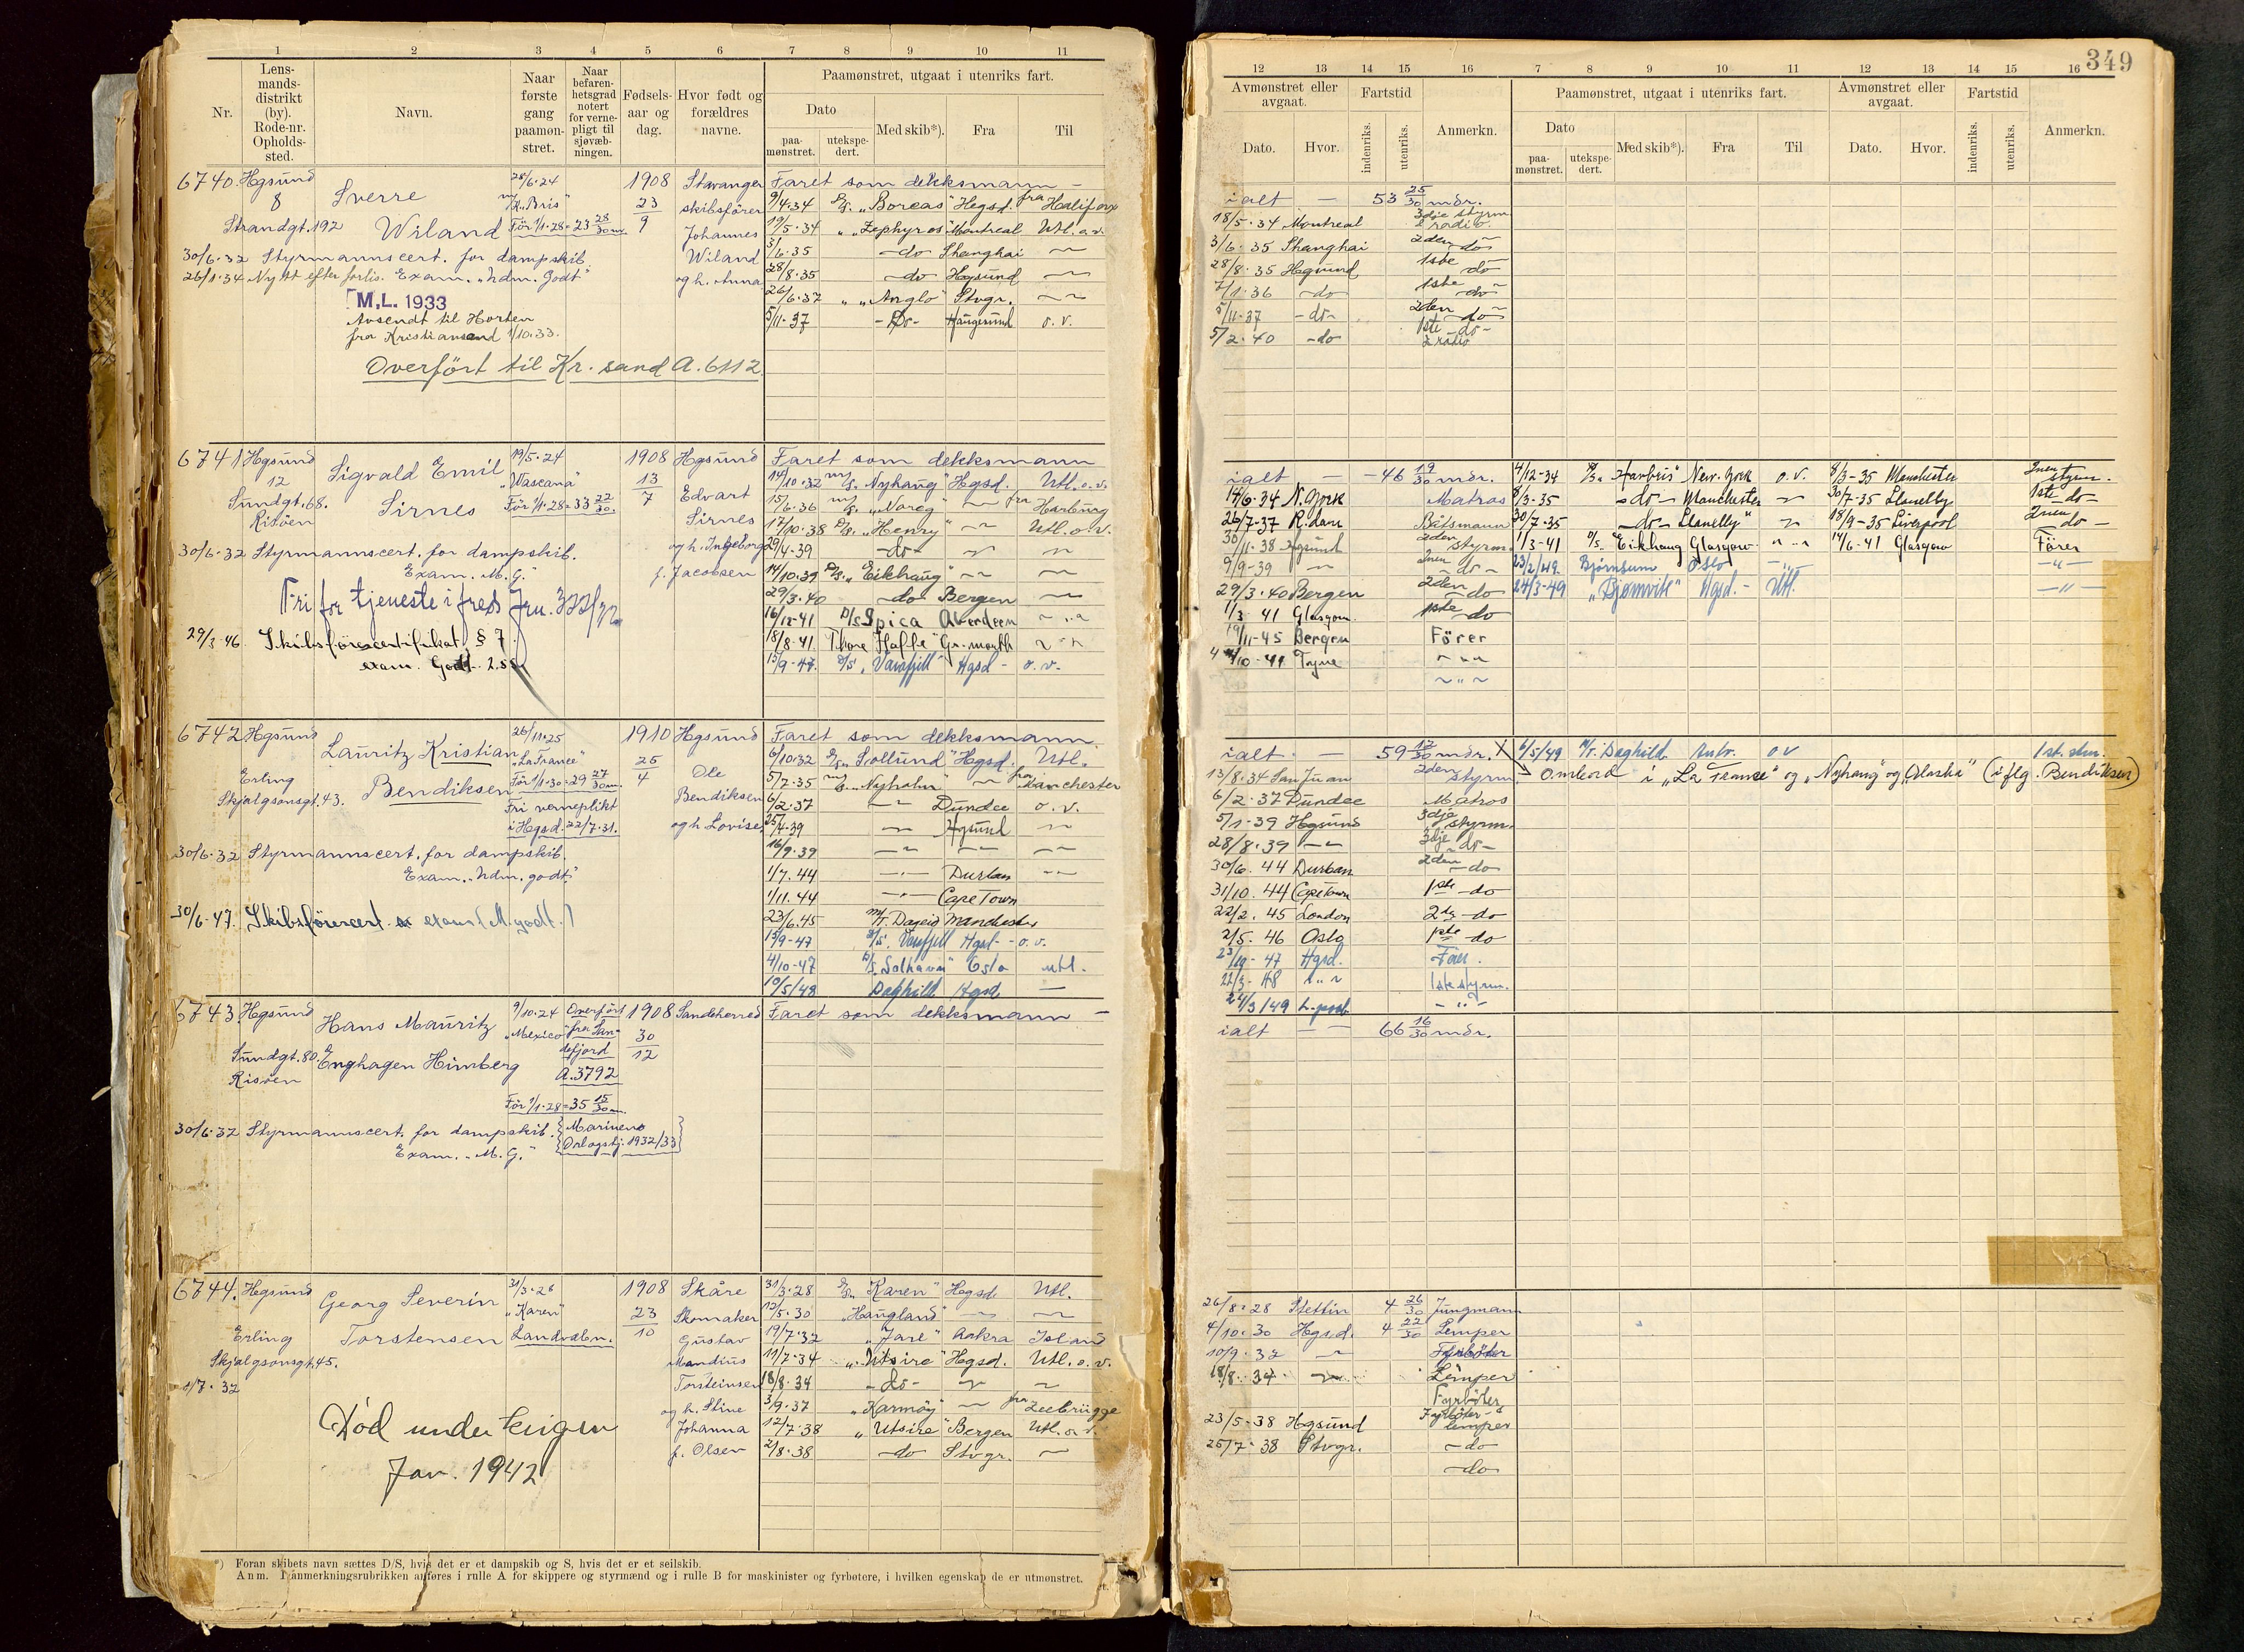 349
1 2 3 4 5 6 7 8 9 10 11
Nr.
Lens-
mands-
distrikt
(by).
Rode-nr.
Opholds-
sted.
Navn.
Naar
første
gang
paamøn-
stret.
Naar
befaren-
hetsgrad
notert
for verne-
pligt til
sjøvæb-
ningen.
Fødsels-
aar og
dag.
Hvor født og
forældres
navne.
Paamønstret, utgaat i utenriks fart.
Dato
paa-
mønstret.
utekspe-
dert.
Med skib*).
Fra
Til
12 13 14 15 16 7 8 9 10 11 12 13 14 15 16
Avmønstret eller
avgaat.
Fartstid
Dato.
Hvor.
indenriks.
utenriks.
Anmerkn.
Paamønstret, utgaat i utenriks fart.
Dato
paa-
mønstret.
utekspe-
dert.
Med skib*).
Fra
Til
Avmønstret eller
avgaat.
Fartstid
Dato.
Hvor.
indenriks.
utenriks.
Anmerkn.
6740. Hgsund
8
Strandgt. 192
Sverre
Wiland
28/6-24
"Bris"
Før 1/1-28 = 23 28/30 m.
1908
23
9
Stavanger
skibsfører
Johannes
Wiland
og h. Anna
30/6-32 Styrmannscert. for dampskib
26/1-34 Nytt efter forlis. Exam. "ndm. Godt"
M.L. 1933
Avsendt til Horten
fra Kristiansand 1/10.33.
Overført til Kr. sand A. 6112.
Faret som dekksmann –
9/4-34 D/S. "Boreas" Hegsd. fra Halifax
19/5-34 " "Zephyros" Montreal Utl. o.v.
3/6-35 – do Shanghai –
28/8-35 – do Hgsund –
26/6-37 " "Anglo" Stvgr. –
5/11-37 – Do – Haugesund o. v.
ialt – 53 25/30 mdr.
18/5-34 Montreal 3dje styrm. & radio.
3/6-35 Shanghai 2den – do –
28/8-35 Hegsund 1ste do
7/1-36 – do – 1ste do
5/11-37 – do – 2den – do –
5/2-40 – do 1ste – do – & radio
6741 Hgsund
12
Sundgt. 68.
Risøen
Sigvald Emil
Sirnes
19/5-24
"Wascana"
Før 1/1-28 = 33 22/30.
1908
13
7
Hgsund
Edvart
Sirnes
og h. Ingeborg
f. Jacobsen
30/6-32 Styrmannscert. for dampskib.
Exam. M. G."
Fri for tjeneste i fred Jru. 322/32
29/3-46. Skibsførercertifikat, § 7
exam. Godt
Faret som dekksmann
14/10-32 m/s. "Nyhaug" Hgsd. Utl. o. v.
15/6-36 m/s. "Noreg" – fra Harburg
17/10-38 D/S. "Henry" – Utl. o. v.
29/4-39 – do – – –
14/10-39 D/S. "Eikhaug" – –
29/3-40 – do Bergen –
16/12-41 D/S Spica Aberdeen – " –
18/8-41. Thore Hafte Gr. mouth – " –
15/9-47. D/S. "Varefjell" Hgsd – o. v.
ialt – – 46 19/30 mdr.
14/6-34 N. York Matros
26/7-37 R. dam Båtsmann
30/11-38 Hgsund 2den styrm.
9/9-39 – 2nen – do –
29/3-40 Bergen 2den – do
1/3 41 Glasgow. 1ste do
19/11-45 Bergen Fører
4/10-41 Tyne – " –
– " –
4/12-34 D/S. "Havbris" New. York o. v. 8/3-35 Manchester 2nen styrm.
8/3-35 – do – Manchester – 30/7-35 Llanelly 1ste – do –
30/7-35 – do – Llanelly" – 18/9-35 Liverpool 2nen – do –
1/3-41 D/S. Eikhaug Glasgow – " – 14/6-41 Glasgow Fører
23/2/49. Bjørnsum Oslo – " – – " –
24/3-49 "Bjørnvik" Hgsd. – Utl. – " –
6742 Hgsund
Erling
Skjalgsonsgt. 43.
Lauritz Kristian
Bendiksen
26/11-25
"La France"
Før 1/1-30 = 29 27/30 m.
Fri verneplikt
i Hgsd. 22/7-31.
1910
25
4
Hgsund
Ole
Bendiksen
og h. Lovise
30/6-32 Styrmannscert. for dampskib.
Exam. "ndm. godt."
30/6-47. Skibsførercert. exam (M. godt.)
Faret som dekksmann.
6/10-32 D/S. "Sollund" Hgsd. Utl.
5/7-35 m/s. "Nyholm" – fra Manchester
6/2-37 – Dundee o. v.
25/4-39 – Hgsund –
16/9-39 – – –
1/7.44 – Durban –
1/11.44 – Cape Town
23/6.45 m/T. Dageid Manchester
15/9-47 D/S. Varefjell Hgsd – o. v.
4/10-47 D/S. "Solhavn" Oslo utl.
10/5/48 Daghild Hgsd. –
ialt – 59 12/30 mdr.
13/8-34 San Juan 2den styrm.
6/2-37 Dundee Matros
5/1-39 Hgsund 3dje styrm.
28/8-39 – 3dje do –
30/6.44 Durban 2den – do
31/10.44 Cape Town 1ste – do
22/2.45 London 2den – do
2/5-46 Oslo 1ste – do
23/19-47 Hgsd. Før.
22/3-48 – " – 1ste styrm.
24/3/49 L.pool – " –
X 6/5/49 M/T. Daghild Antv. o v 1st. stm.
Ombord i "La France" og "Nyhaug" og "Alaska" (iflg. Bendiksen)
6743. Hegsund
Sundgt. 80.
Risøen
Hans Mauritz
Enghagen Himberg
9/10-24
"Mexico"
Overført
fra San-
defjord
A. 3792
Før 1/1-28 = 35 15/30 m.
1908
30
12
Sandeherred
30/6-32 Styrmannscert. for dampskib.
Exam. "M. G."
{Marinens
Orlogstj. 1932/33}
Faret som dekksmann –
ialt – – 66 16/30 mdr.
6744. Hegsund
Erling
Skjalgsonsgt. 45.
1/7-32
Georg Severin
Torstensen
31/3-28
"Karen"
Landvæbn.
1908
23
10
Skåre
Skomaker
Gustav
Mandius
Torsteinsen
og h. Stine
Johanna
f. Olsen
Død under krigen
Jan. 1942
31/3-28 D/S. "Karen" Hegsd. Utl.
12/5-30 "Haugland" – –
19/7-32 "Jarl" Aakra Island
11/7-34 "Utsire" Hegsd. Utl. o. v.
18/8-34 – do – – –
3/9-37 "Karmøy" – fra Zeebrügge
12/7-38 "Utsire" Bergen Utl. o. v.
2/8-38 – do Stvgr. –
26/8-28 Stettin 4 26/30 Jungmann
4/10-30 Hgsd. 4 22/30 Lemper
10/9-32 – Fyrbøter
18/8-34 – Lemper
Fyrbøter
23/5-38 Hgsund Fyrbøter- lemper
25/7-38 Stvgr. – do
– do
*) Foran skibets navn sættes D/S, hvis det er et dampskib og S, hvis det er et seilskib.
Anm. I anmerkningsrubrikken anføres i rulle A for skippere og styrmænd og i rulle B for maskinister og fyrbøtere, i hvilken egenskap de er utmønstret.